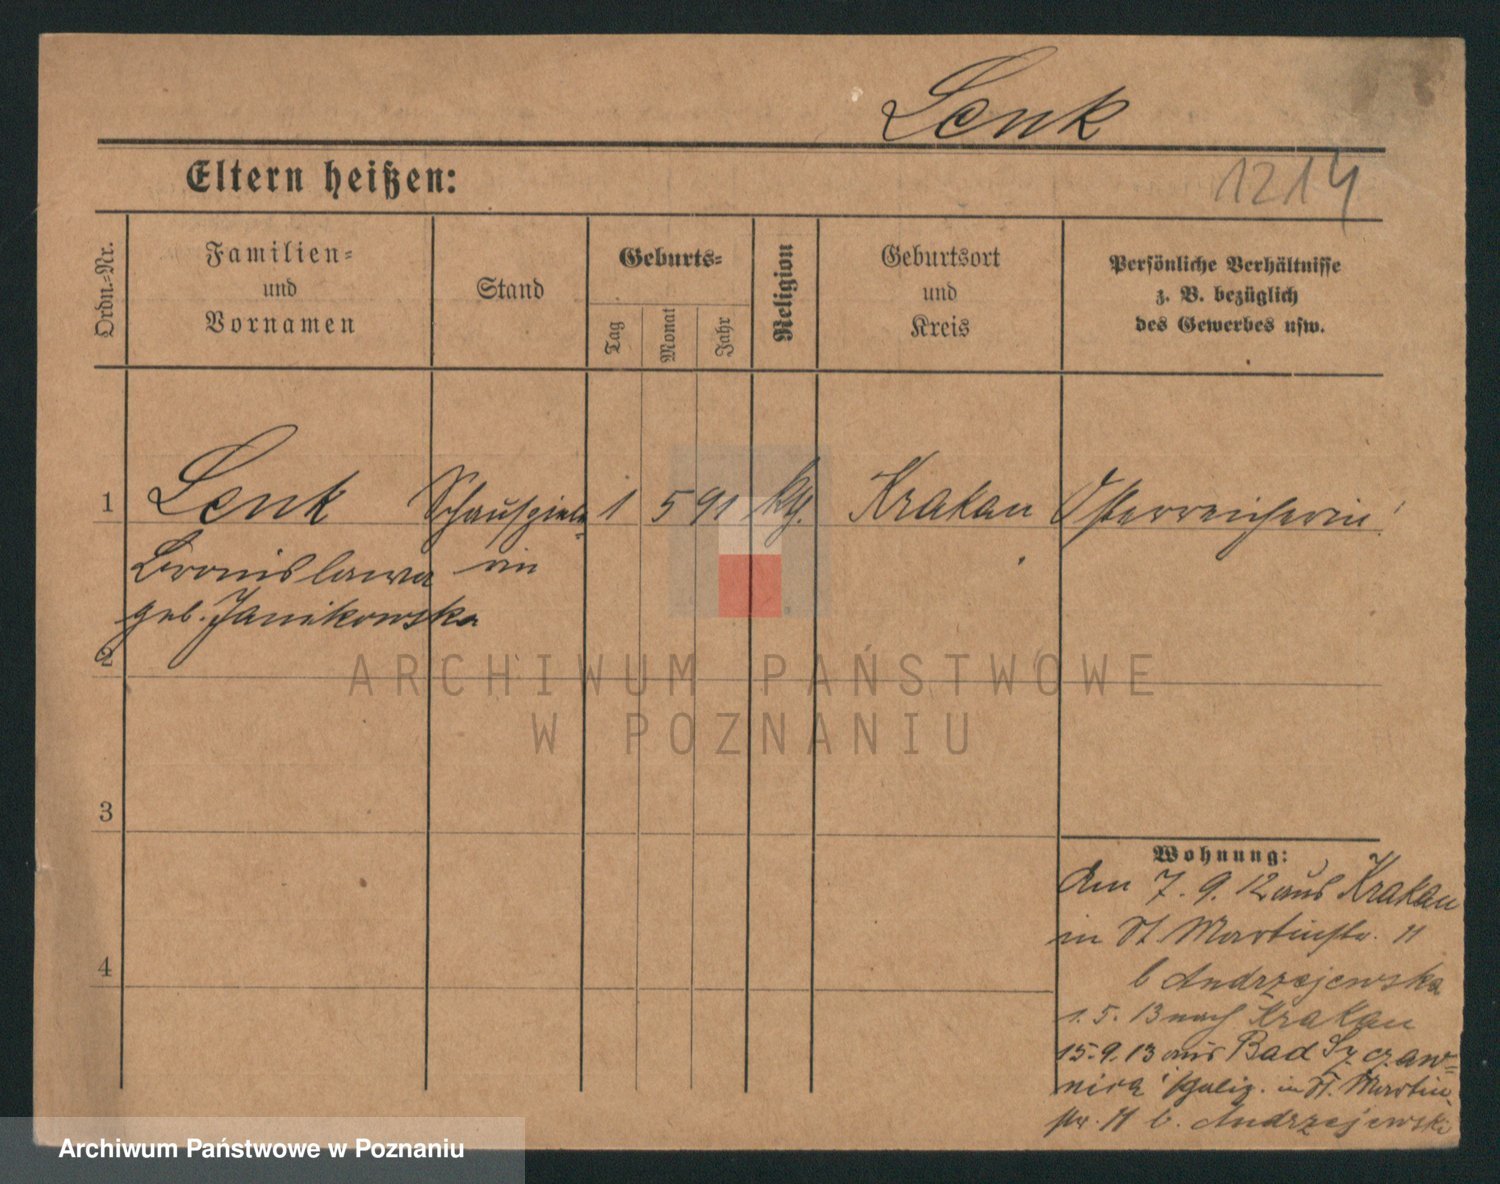 Lenk
Eltern heißen:
1214
Ordn.-Nr.
Familien-
und
Vornamen
Stand
Geburts-
Tag
Monat
Jahr
Religion
Geburtsort
und
Kreis
Persönliche Verhältnisse
z. B. bezüglich
des Gewerbes usw.
1 Lenk Schauspiele- 1 5 91 kth. Krakau Österreicherin
Bronislawa rin
geb. Janikowska
2
3
4
Wohnung:
Am 7. 9. 12 aus Krakau
in St Martinstr. 11
b Andrzejewska
1. 5. 13 nach Krakau
15. 9. 13 aus Bad Szczaw=
nica Galiz. in St. Martin
str. 11 b. Andrzejewski
ARCHIWUM PAŃSTWOWE
W POZNANIU
Archiwum Państwowe w Poznaniu